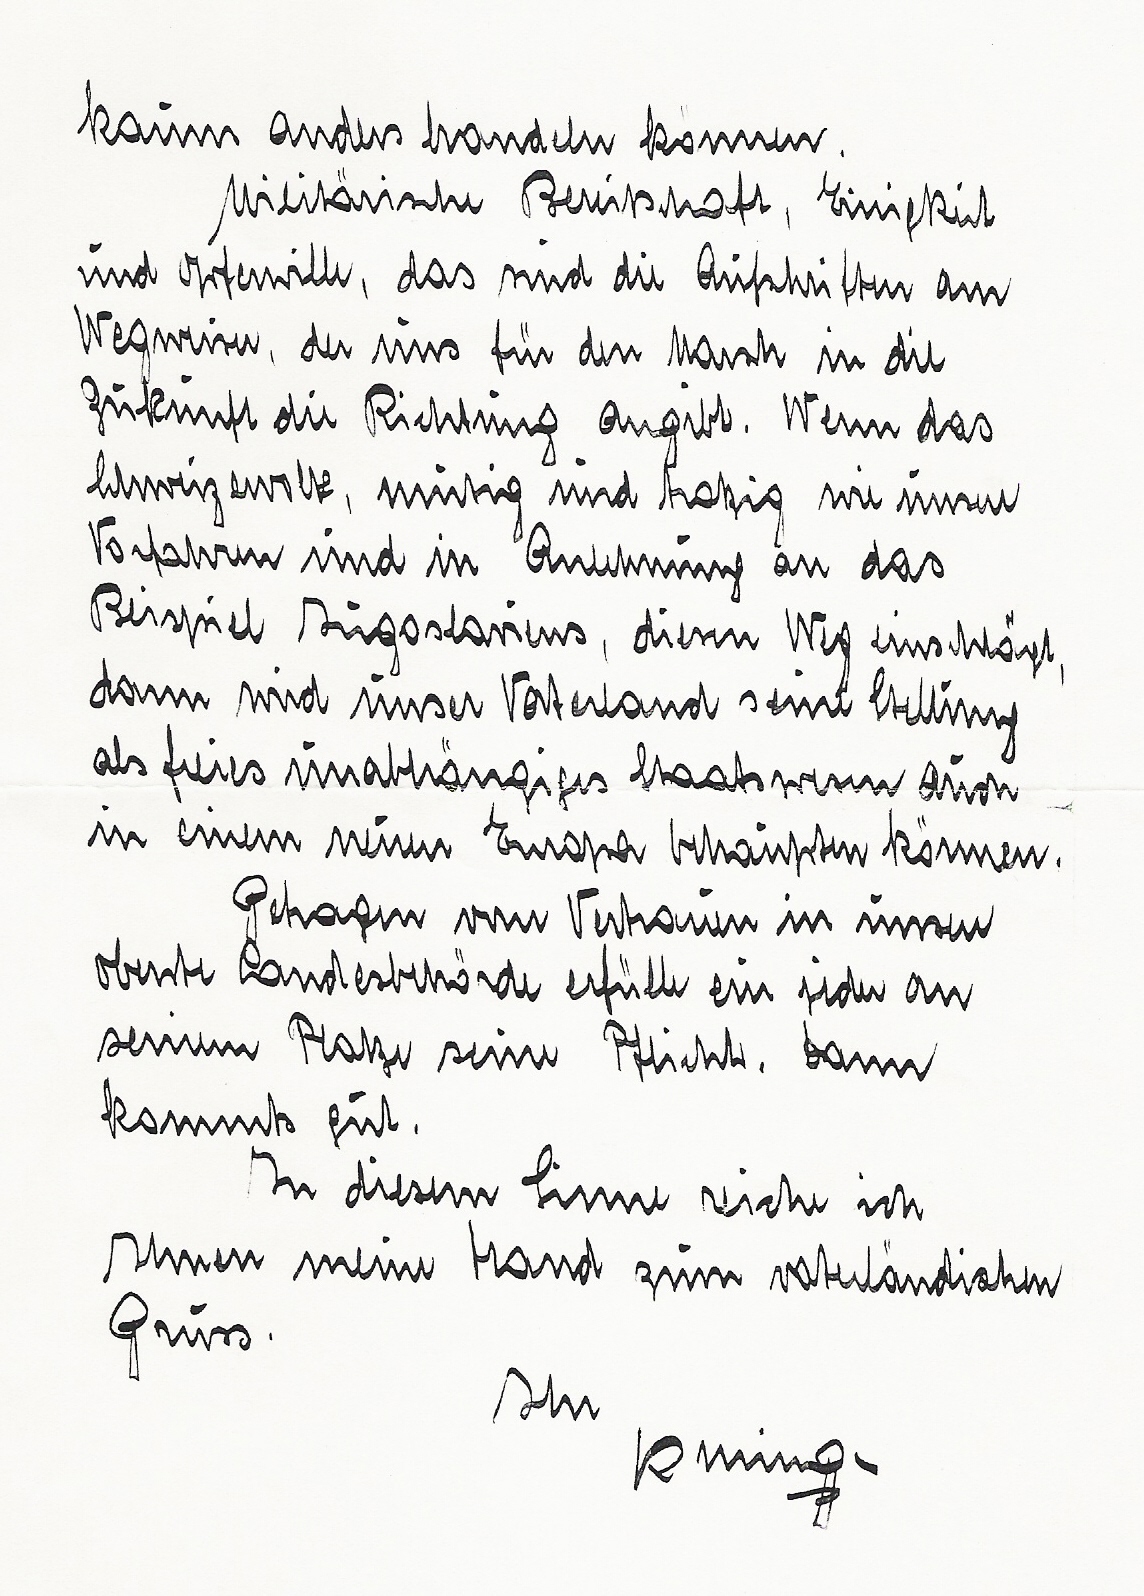 kaum anders handeln können.
Militärische Bereitschaft, Einigkeit
und Opferwille, das sind die Aufschriften am
Wegweiser, der uns für den Marsch in die
Zukunft die Richtung angibt. Wenn das
Schweizervolk, mutig und trotzig wie unsere
Vorfahren und in Anlehnung an das
Beispiel Jugoslaviens, diesen Weg einschlägt,
dann wird unser Vaterland seine Stellung
als freies unabhängiges Staatswesen auch
in einem neuen Europa behaupten können.
Getragen vom Vertrauen in unsere
oberste Landesbehörde erfülle ein jeder an
seinem Platze seine Pflicht. Dann
kommts gut.
In diesem Sinne reiche ich
Ihnen meine Hand zum vaterländischen
Gruss.
Ihr